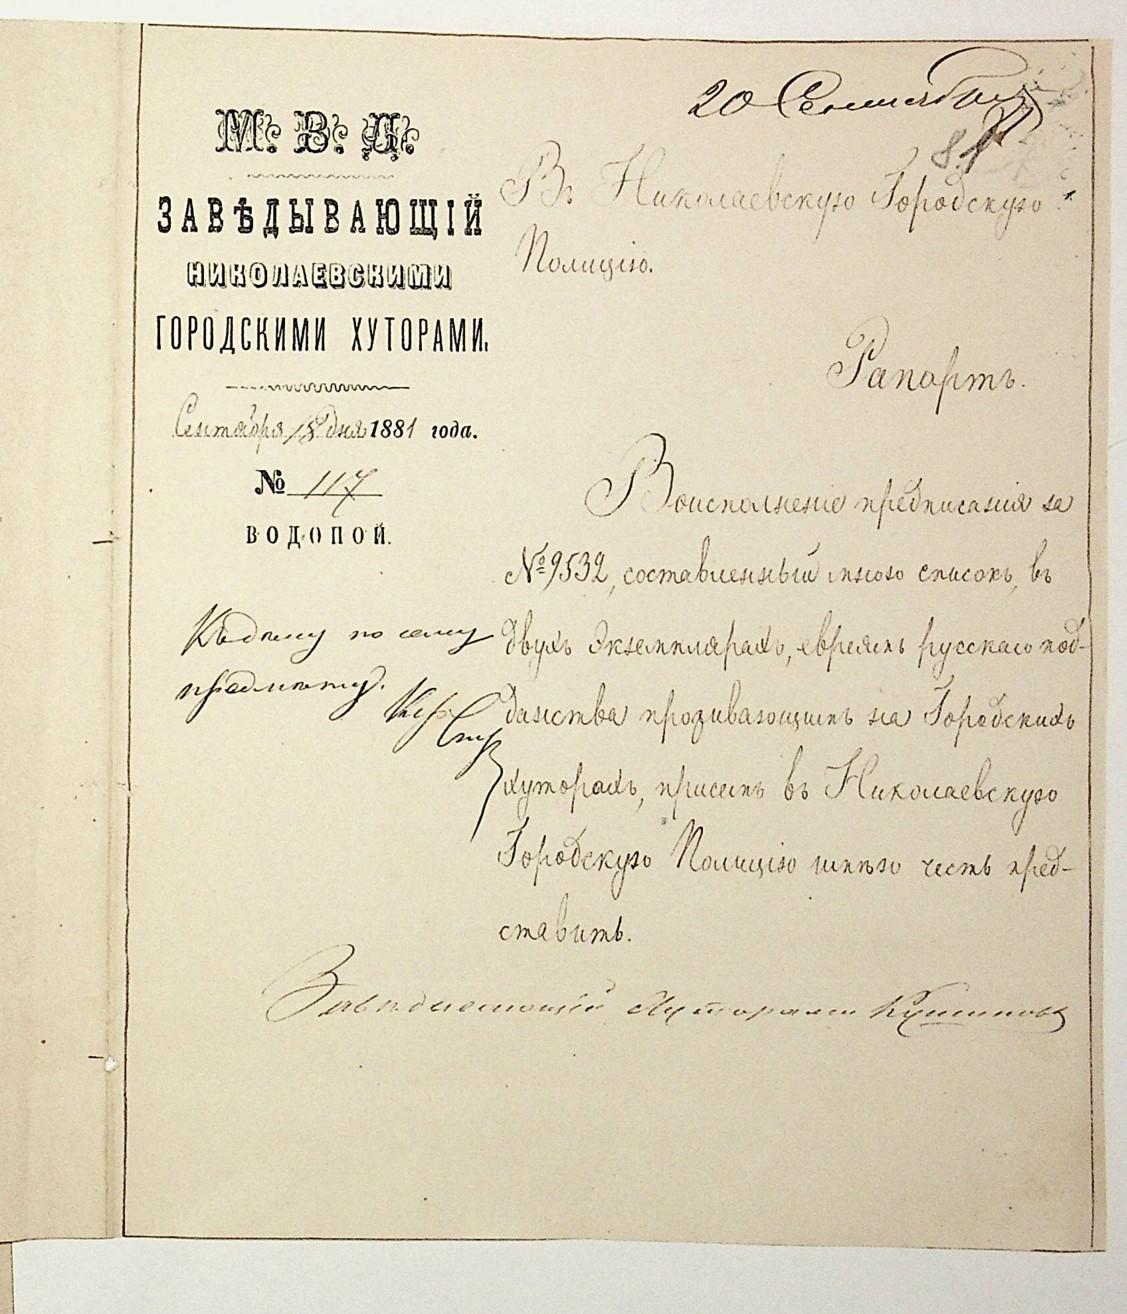 20 Сентября
81
М. В. Д.
ЗАВѢДЫВАЮЩІЙ
НИКОЛАЕВСКИМИ
ГОРОДСКИМИ ХУТОРАМИ.
Сентября 18 дня 1881 года.
№ 117
ВОДОПОЙ.
Въ Николаевскую Городскую
Полицію.
Рапортъ.
Воисполненіе предписанія за
№ 9532, составленный мною списокъ, въ
двухъ экземплярахъ, евреямъ русскаго под-
данства проживающимъ на Городскихъ
хуторахъ, присемъ въ Николаевскую
Городскую Полицію имѣю честь пред-
ставить.
Къ дѣлу по сему
предмету.
Завѣдывающій Хуторами